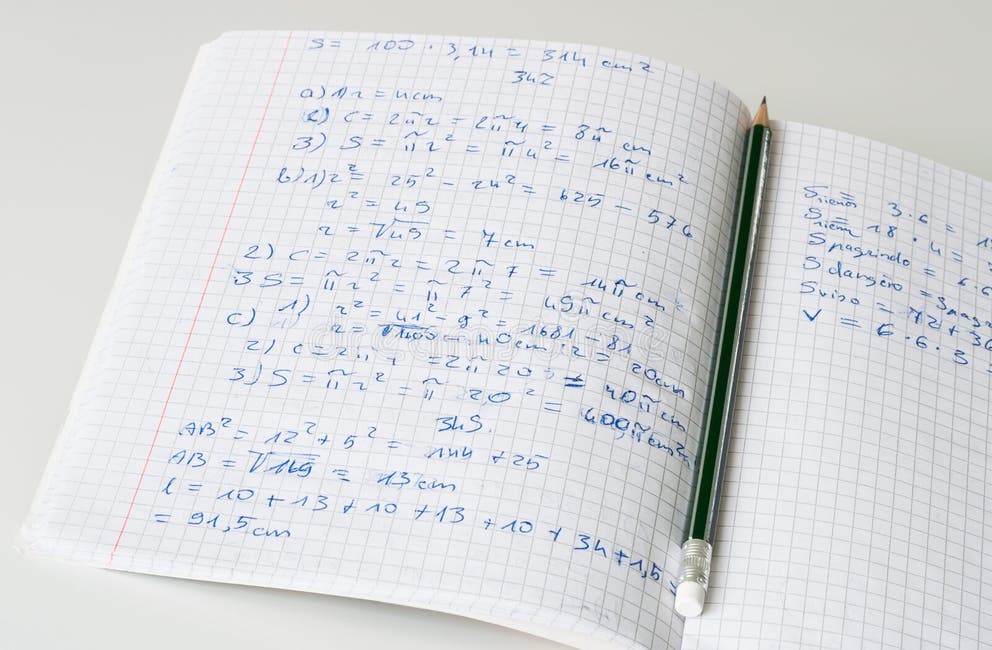 S = 100 · 3,14 = 314 cm²
342
a) 1) r = 4cm
2) C = 2πr = 2π4 = 8π cm
3) S = πr² = π4² = 16π cm²
b) 1) r² = 25² - 24² = 625 - 576
r² = 49
r = √49 = 7cm
2) C = 2πr = 2π7 = 14π cm
3 S = πr² = π7² = 49π cm²
c) 1) r² = 41² - 9² = 1681 - 81
r = √1600 = 40cm : 2 = 20cm
2) C = 2πr = 2π20 = 40π cm
3) S = πr² = π20² = 400π cm²
345.
AB² = 12² + 5² = 144 + 25
AB = √169 = 13cm
l = 10 + 13 + 10 + 13 + 10 + 34 + 1,5
= 91,5cm
S = 3·6 =
S = 18·4 =
Spagrindo = 6·6
S dangčio = Spagr
Sviso = 72 + 36
V = 6·6·3